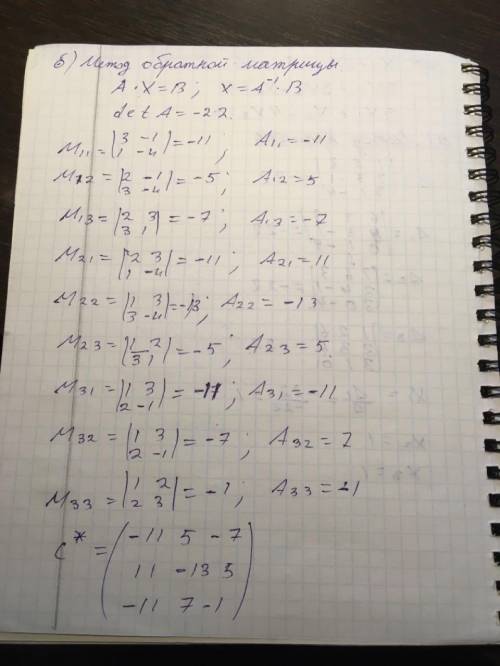 б) Метод обратной матрицы
A · X = B ; X = A⁻¹ · B
det A = -22.
M₁₁ = |3 -1; 1 -4| = -11 ; A₁₁ = -11
M₁₂ = |2 -1; 3 -4| = -5 ; A₁₂ = 5
M₁₃ = |2 3; 3 1| = -7 ; A₁₃ = -7
M₂₁ = |2 3; 1 -4| = -11 ; A₂₁ = 11
M₂₂ = |1 3; 3 -4| = -13 ; A₂₂ = -13
M₂₃ = |1 2; 3 1| = -5 ; A₂₃ = 5
M₃₁ = |1 3; 2 -1| = -11 ; A₃₁ = -11
M₃₂ = |1 3; 2 -1| = -7 ; A₃₂ = 7
M₃₃ = |1 2; 2 3| = -1 ; A₃₃ = -1
C* = (-11 5 -7
11 -13 5
-11 7 -1)